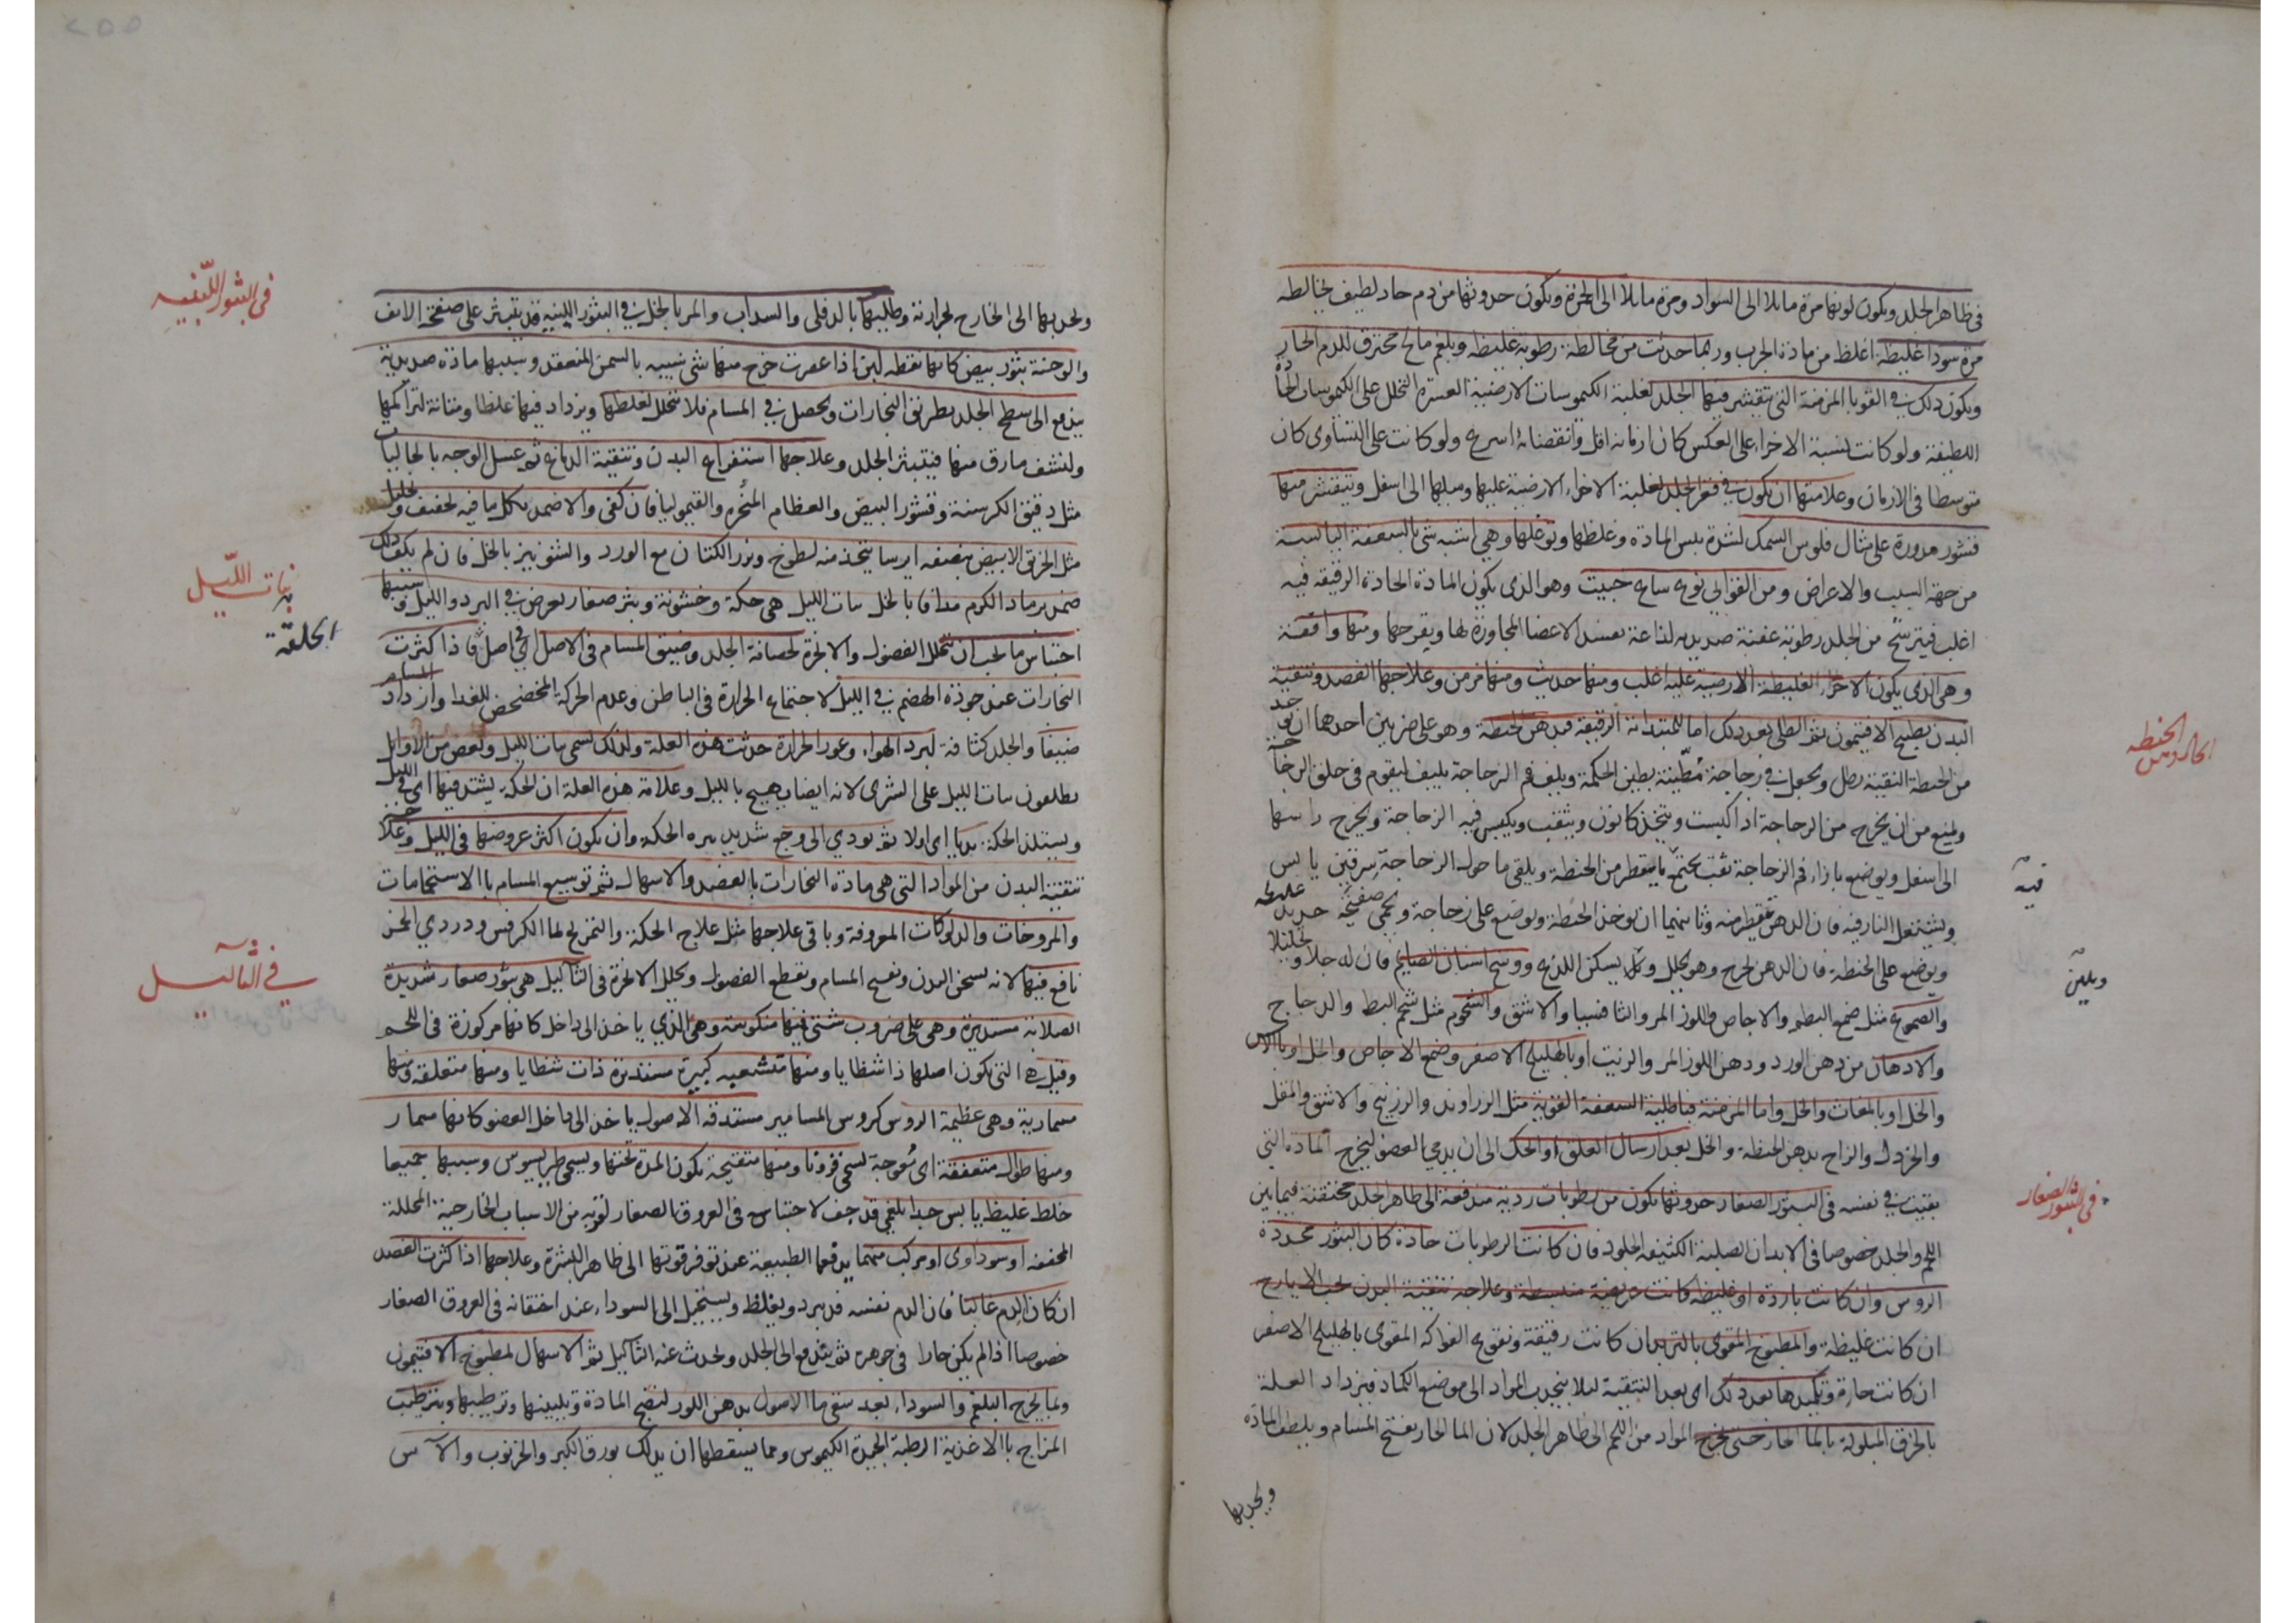 في ظاهر الجلد ويكون لونها مرة مايلا الى السواد ومرة مايلا الى الحمرة ويكون حدوثها من دم حاد لطيف يخالطه
مرة سودا غليظة اغلظ من مادة الجرب وربما حدثت من مخالطة رطوبة غليظه وبلغم مالح محترق للدم الحار
ويكون ذلك في القوبا المزمنة التي يتقشر فيها الجلد لغلبة الكيموسات الارضية العسرة التحلل على الكيموسات الحادة
اللطيفة ولو كانت نسبة الاجزاء على العكس كان ازمانه اقل وانقضائه اسرع ولو كانت على التساوى كان
متوسطا في الازمان وعلامتها ان يكون في قعر الجلد لغلبة الاجزاء الارضية عليها وميلها الى اسفل ويتقشر منها
قشور مدورة على مثال فلوس السمك لشدة يبس المادة وغلظها وتوغلها وهي اشبه شي بالسعفة اليابسة
من جهة السبب والاعراض ومن القوابي نوع ساع خبيث وهو الذى يكون المادة الحادة الرقيقة فيه
اغلب فيترشح من الجلد رطوبة عفنة صديديه لذاعة تفسد الاعضا المجاورة لها ويقرحها ومنها واقفة
وهي الذى يكون الاجزاء الغليظة الارضية عليه اغلب ومنها حديث ومنها مزمن وعلاجها الفصد وتنقية
البدن بطبيخ الافتيمون ثم الطلى بعد ذلك اما للمبتدائة الرقيقة فبدهن الحنطة وهو على ضربين احدهما ان يوخذ
من الحنطة النقية رطل ويجعل في زجاجة مطينة بطين الحكمة ويلف فم الزجاجة بليف ليقوم في حلق الزجاجة
ويمنع من ان يخرج من الزجاجة اذا اكبست ويتخذ كانون ويثقب ويكبس فيه الزجاجة ويخرج راسها
الى اسفل ويوضع بازاء فم الزجاجة ثقب يجتمع ما يتقطر من الحنطة ويلقى ما حول الزجاجة سرقين يابس
ويشتعل النار فيه فان الدهن يقطر منه وثانيهما ان يوخذ الحنطة ويوضع على زجاجة ويحمي صفيحة حديد عليه
ويوضع على الحنطة فان الدهن يخرج وهو يحلل ويسكن اللذع ووسخ اسنان الصايم فان له جلا وتحليلا
والصموغ مثل صمغ البطم والاجاص واللوز المر والثافسيا والاشق والشحوم مثل شحم البط والدجاج
والادهان من دهن الورد ودهن اللوز المر والزنبق او بالهليلج الاصفر وصمغ الاجاص والخل او بالاس
والخل او بالمغاث والخل واما المزمنة فباطلية السعفة القوية مثل الزراوند والزرنيخ والاشق والمقل
والخردل والزاج بدهن الحنطة والخل بعد ارسال العلق او الحك الى ان يدمي العضو ليخرج المادة التي
بقيت في نفسه في البثور الصغار حدوثها يكون من رطوبات ردية مندفعة الى ظاهر الجلد محتقنة فيما بين
اللحم والجلد خصوصا في الابدان الصلبة الكثيفة الجلود فان كانت الرطوبات حادة كان البثور محددة
الروس وان كانت باردة او غليظه كانت عريضة منبسطة وعلاجه تنقية البدن بحب الايارج
ان كانت غليظة والمطبوخ المقوى بالتربد ان كانت رقيقة ونقوع الفواكه المقوى بالهليلج الاصفر
ان كانت حارة وتكميدها بعد ذلك اى بعد التنقية ليلا ينجذب المواد الى موضع الكماد فيزداد العلة
بالخرق المبلولة بالما الحار حتى يخرج المواد من اللحم الى ظاهر الجلد لان الما الحار يفتح المسام ويلطف المادة
ويجذبها
الحنطه
فيه
ويلين
في البثور الصغار
ويجذبها الى الخارج لحرارته وطليها بالدفلى والسداب والمر بالخل في البثور اللبنية قد يتبثر على صفحة الانف
والوجنة بثور بيض كانها نقطه لبن اذا عصرت خرج منها شي شبيه بالسمن المنعقد وسببها مادة صديدية
يندفع الى سطح الجلد بطريق البخارات ويحصل في المسام فلا يتحلل لغلظها ويزداد فيها غلظا ومتانة لتراكمها
ولنشف مارق منها فيتبثر الجلد وعلاجها استفراغ البدن وتنقية الدماغ ثم غسل الوجه بالجاليات
مثل دقيق الكرسنة وقشور البيض والعظام النخرة والقيموليا فان كفى والا ضمد بكل ما فيه تجفيف وتحليل
مثل الخربق الابيض بنصفه ايرسا يتخذ منه لطوخ وبزر الكتان مع الورد والشونيز بالخل فان لم يكف ذلك
ضمد برماد الكرم مدافا بالخل بنات الليل هي حكة وخشونة وبثر صغار يعرض في البرد والليل وسببها
احتباس ما يجب ان يتحلل الفضول والابخرة لحصانة الجلد وضيق المسام في الاصل فاذا كثرت
البخارات عند جودة الهضم في الليل لاجتماع الحرارة في الباطن وعدم الحركة المخضخض للغدا وازداد المسام
ضيقا والجلد كثافة لبرد الهواء وغور الحرارة حدثت هذه العلة ولذلك تسمى بنات الليل وبعض من الاوايل
يطلقون بنات الليل على الشرى لانه ايضا يهيج بالليل وعلامة هذه العلة ان الحكة يشتد فيها اى في الليل
ويستلذ الحكة بديا اى اولا ثم يودي الى وجع شديد بره الحكة وان يكون اكثر عروضها في الليل وعلاجه
تنقية البدن من المواد التي هي مادة البخارات بالفصد والاسهال ثم توسيع المسام بالاستحمامات
والمروخات والدلوكات المعروفة وباقي علاجها مثل علاج الحكة والتمريخ بما الكرفس ودردي الخمر
نافع فيها لانه يسخن البدن ويفتح المسام ويقطع الفضول ويحلل الابخرة في الثآليل هي بثور صغار شديدة
الصلابة مستديرة وهي على ضروب شتى فمنها منكوسة وهي الذي ياخذ الى داخل كانها مركوزة في اللحم
وقيل هي التي يكون اصلها ذا شظايا ومنها متشعبه كبيرة مستديرة ذات شظايا ومنها متعلقة ومنها
مسمارية وهي عظيمة الروس كروس المسامير مستدقه الاصول ياخذ الى داخل العضو كانها مسمار
ومنها طوال متعقفة اى معوجة تسمى قرونا ومنها متقيحة يكون المدة تحتها ويسمى طرسوس وسببها جميعا
خلط غليظ يابس جدا بلغمي قد جف لاحتباس في العروق الصغار لقربه من الاسباب الخارجية المحللة
المجففة او سوداوى او مركب منهما يدفعها الطبيعة عند توفر قوتها الى ظاهر البشرة وعلاجها اذا كثرت الفصد
ان كان الدم غالبا فان الدم نفسه قد يبرد ويغلظ ويستحيل الى السوداء عند احتقانه في العروق الصغار
خصوصا اذا لم يكن حارا في جوهره ثم يندفع الى الجلد ويحدث عنه الثآليل ثم الاسهال بمطبوخ الافتيمون
وبما يخرج البلغم والسوداء بعد سقى ما الاصول بدهن اللوز لنضج المادة وتليينها وترطيبها وبترطيب
المزاج بالاغذية الرطبة الجيدة الكيموس ومما يسقطها ان يدلك بورق الكبر والخرنوب والاس
في البثور اللبنيه
بنات الليل
في الثآليل